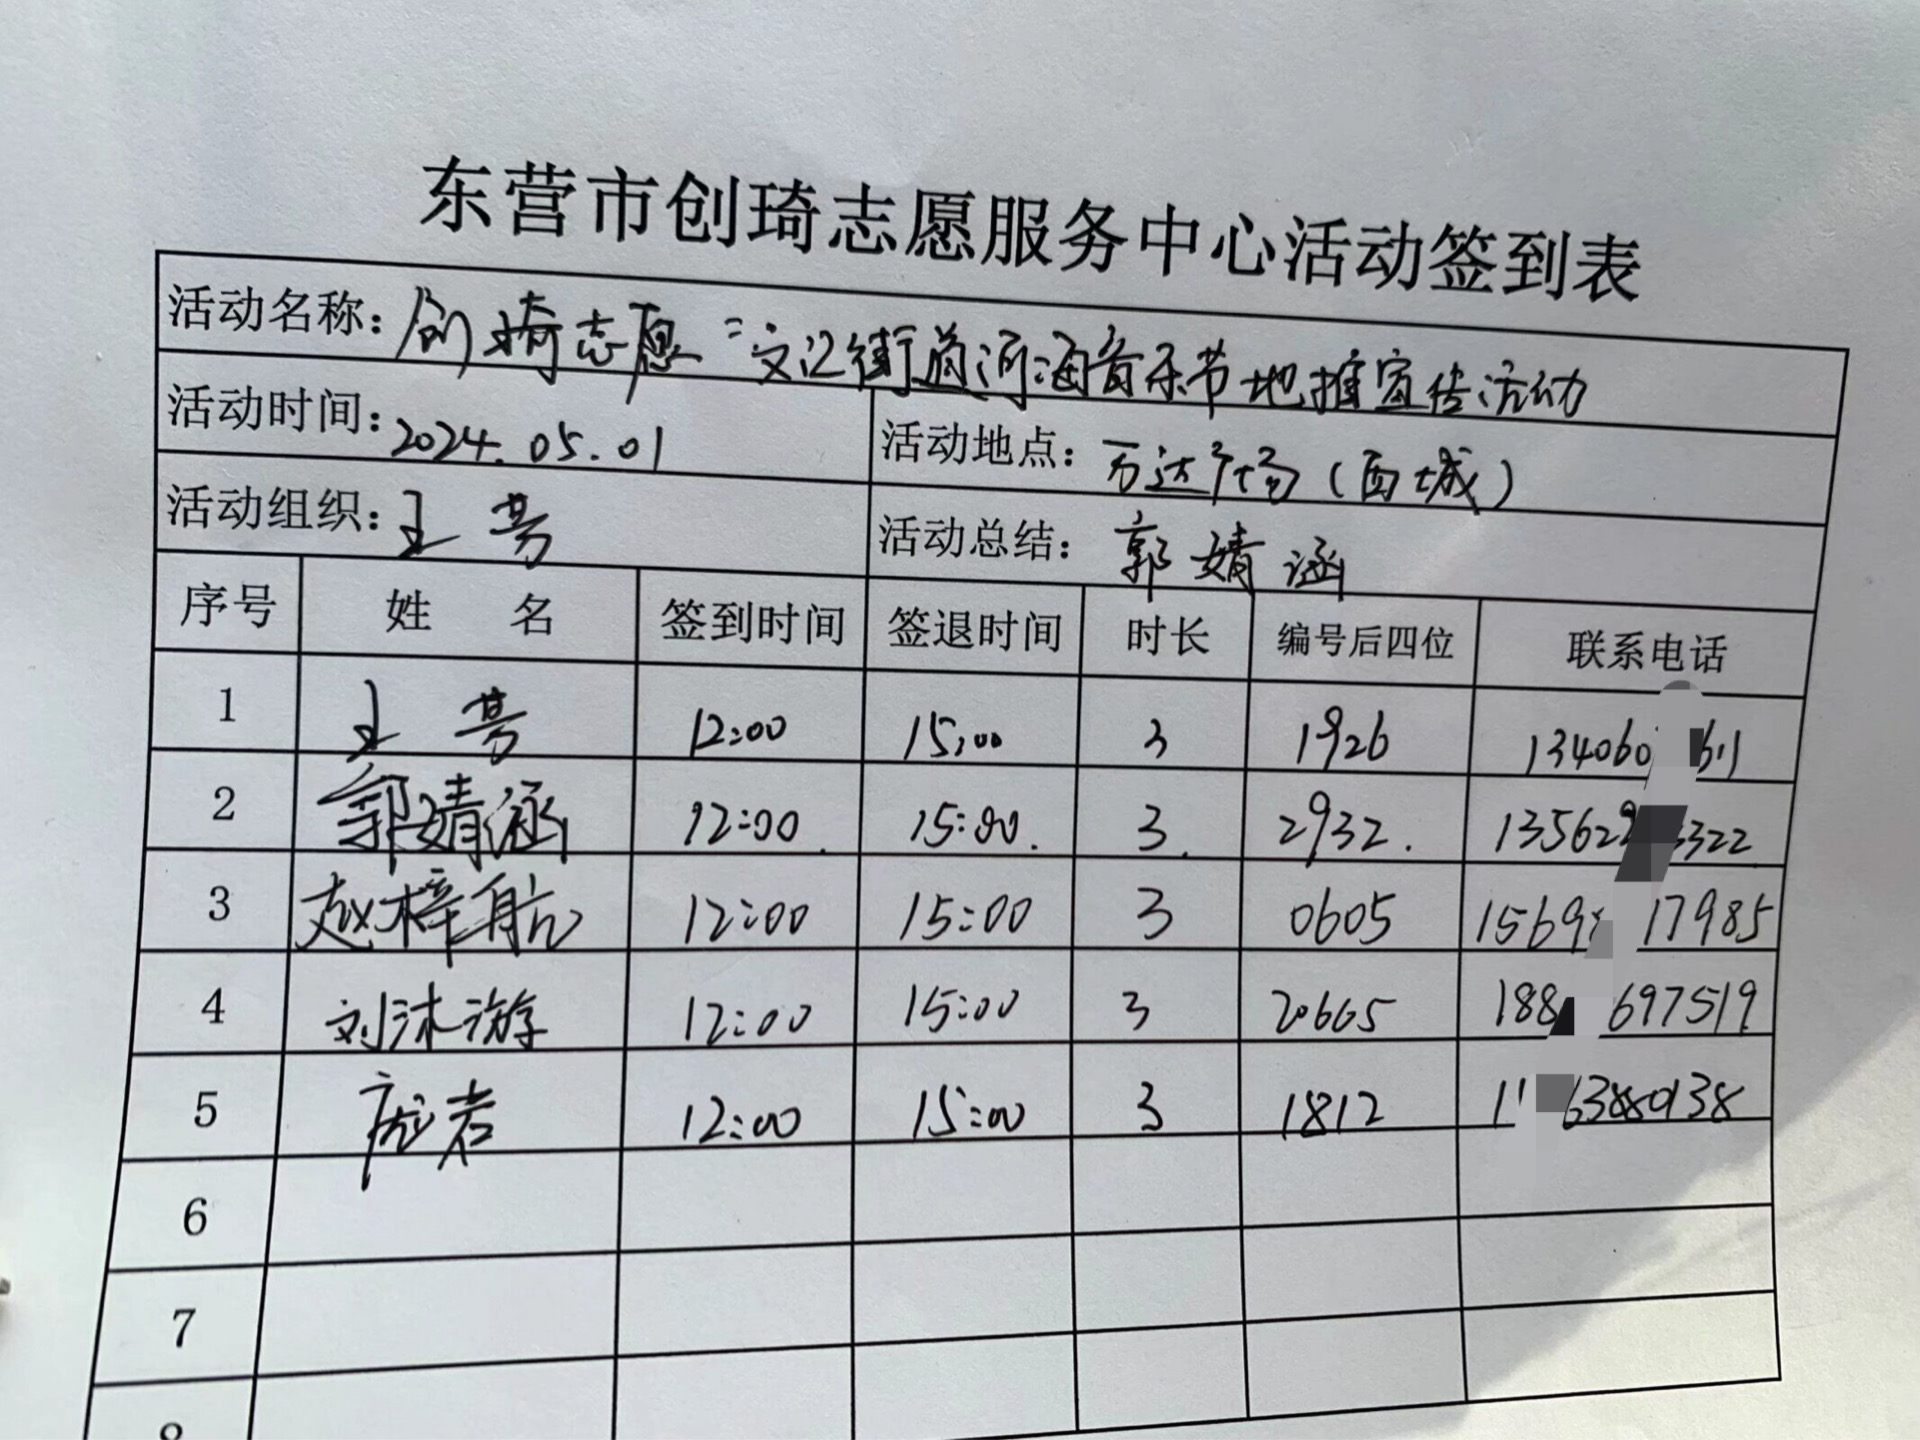 东营市创琦志愿服务中心活动签到表
活动名称：创琦志愿"文汇街道河海音乐节地推宣传活动
活动时间：2024.05.01 活动地点：万达广场（西城）
活动组织：王芳 活动总结：郭婧涵
序号 姓名 签到时间 签退时间 时长 编号后四位 联系电话
1 王芳 12:00 15:00 3 1926 134060 611
2 郭婧涵 12:00. 15:00. 3. 2932. 13562 322
3 赵梓航 12:00 15:00 3 0605 1569 17985
4 刘沐游 12:00 15:00 3 20665 188 697519
5 庞岩 12:00 15:00 3 1812 1 63880138
6
7
8